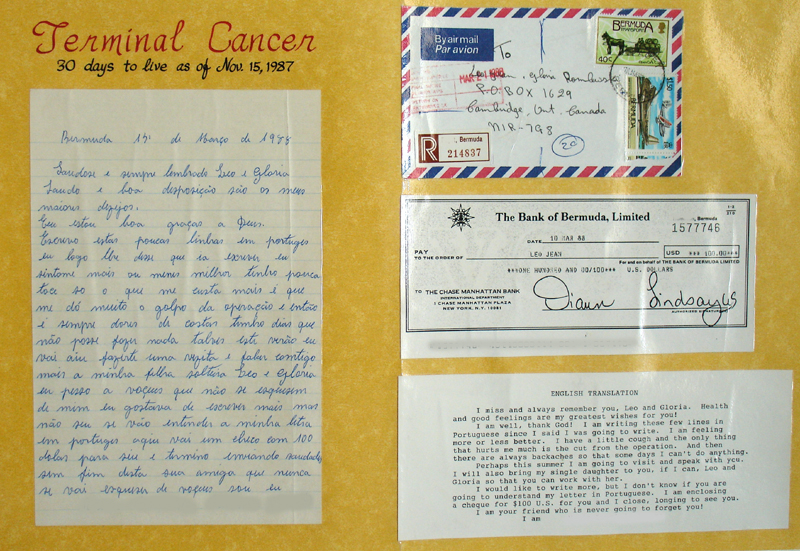 Terminal Cancer
30 days to live as of Nov. 15, 1987
Bermuda 15 de Março de 1988
Saudose e sempre lembrada Leo e Gloria
Saude e boa desposição são os meus
maiores dezejos.
Eu estou boa graças a Deus.
Escrevo estas poucas linhas em portuges
eu logo lhe disse que ia escrever eu
sintome mais ou menos milhor tinho pouca
toce so o que me custa mais é que
me dó muito o golpo da operação e então
é sempre dores de costas tinho dias que
não posse fazer nada talves este verão eu
vai aiu fazerte uma vezita e falar comtigo
mais a minha filha solteira Leo e Gloria
eu pesso a voçues que não se esquesem
de mim eu gostava de escrever mais mas
não seu se vaio entender a minha letra
em portuges aqui vai um checo com 100
dolas para seu e termino enviando saudades
sem fim desta sua amiga que nunca
se vai esqueser de voçues sou eu
By air mail
Par avion
To
Leo Jean, Gloria
P.O BOX 1629
Cambridge, Ont. Canada
N1R-7G8
MAR 2 1988
BERMUDA
40c
BERMUDA
R
Bermuda
214837
The Bank of Bermuda, Limited
Bermuda
1577746
DATE 10 MAR 88
PAY
TO THE ORDER OF LEO JEAN USD *** 100.00***
For and on behalf of THE BANK OF BERMUDA LIMITED
***ONE HUNDRED AND 00/100*** U.S. DOLLARS
TO THE CHASE MANHATTAN BANK
INTERNATIONAL DEPARTMENT
1 CHASE MANHATTAN PLAZA
NEW YORK, N.Y. 10081
AUTHORISED SIGNATURE(S)
ENGLISH TRANSLATION
I miss and always remember you, Leo and Gloria. Health
and good feelings are my greatest wishes for you!
I am well, thank God! I am writing these few lines in
Portuguese since I said I was going to write. I am feeling
more or less better. I have a little cough and the only thing
that hurts me much is the cut from the operation. And then
there are always backaches so that some days I can't do anything.
Perhaps this summer I am going to visit and speak with you.
I will also bring my single daughter to you, if I can, Leo and
Gloria so that you can work with her.
I would like to write more, but I don't know if you are
going to understand my letter in Portuguese. I am enclosing
a cheque for $100 U.S. for you and I close, longing to see you.
I am your friend who is never going to forget you!
I am